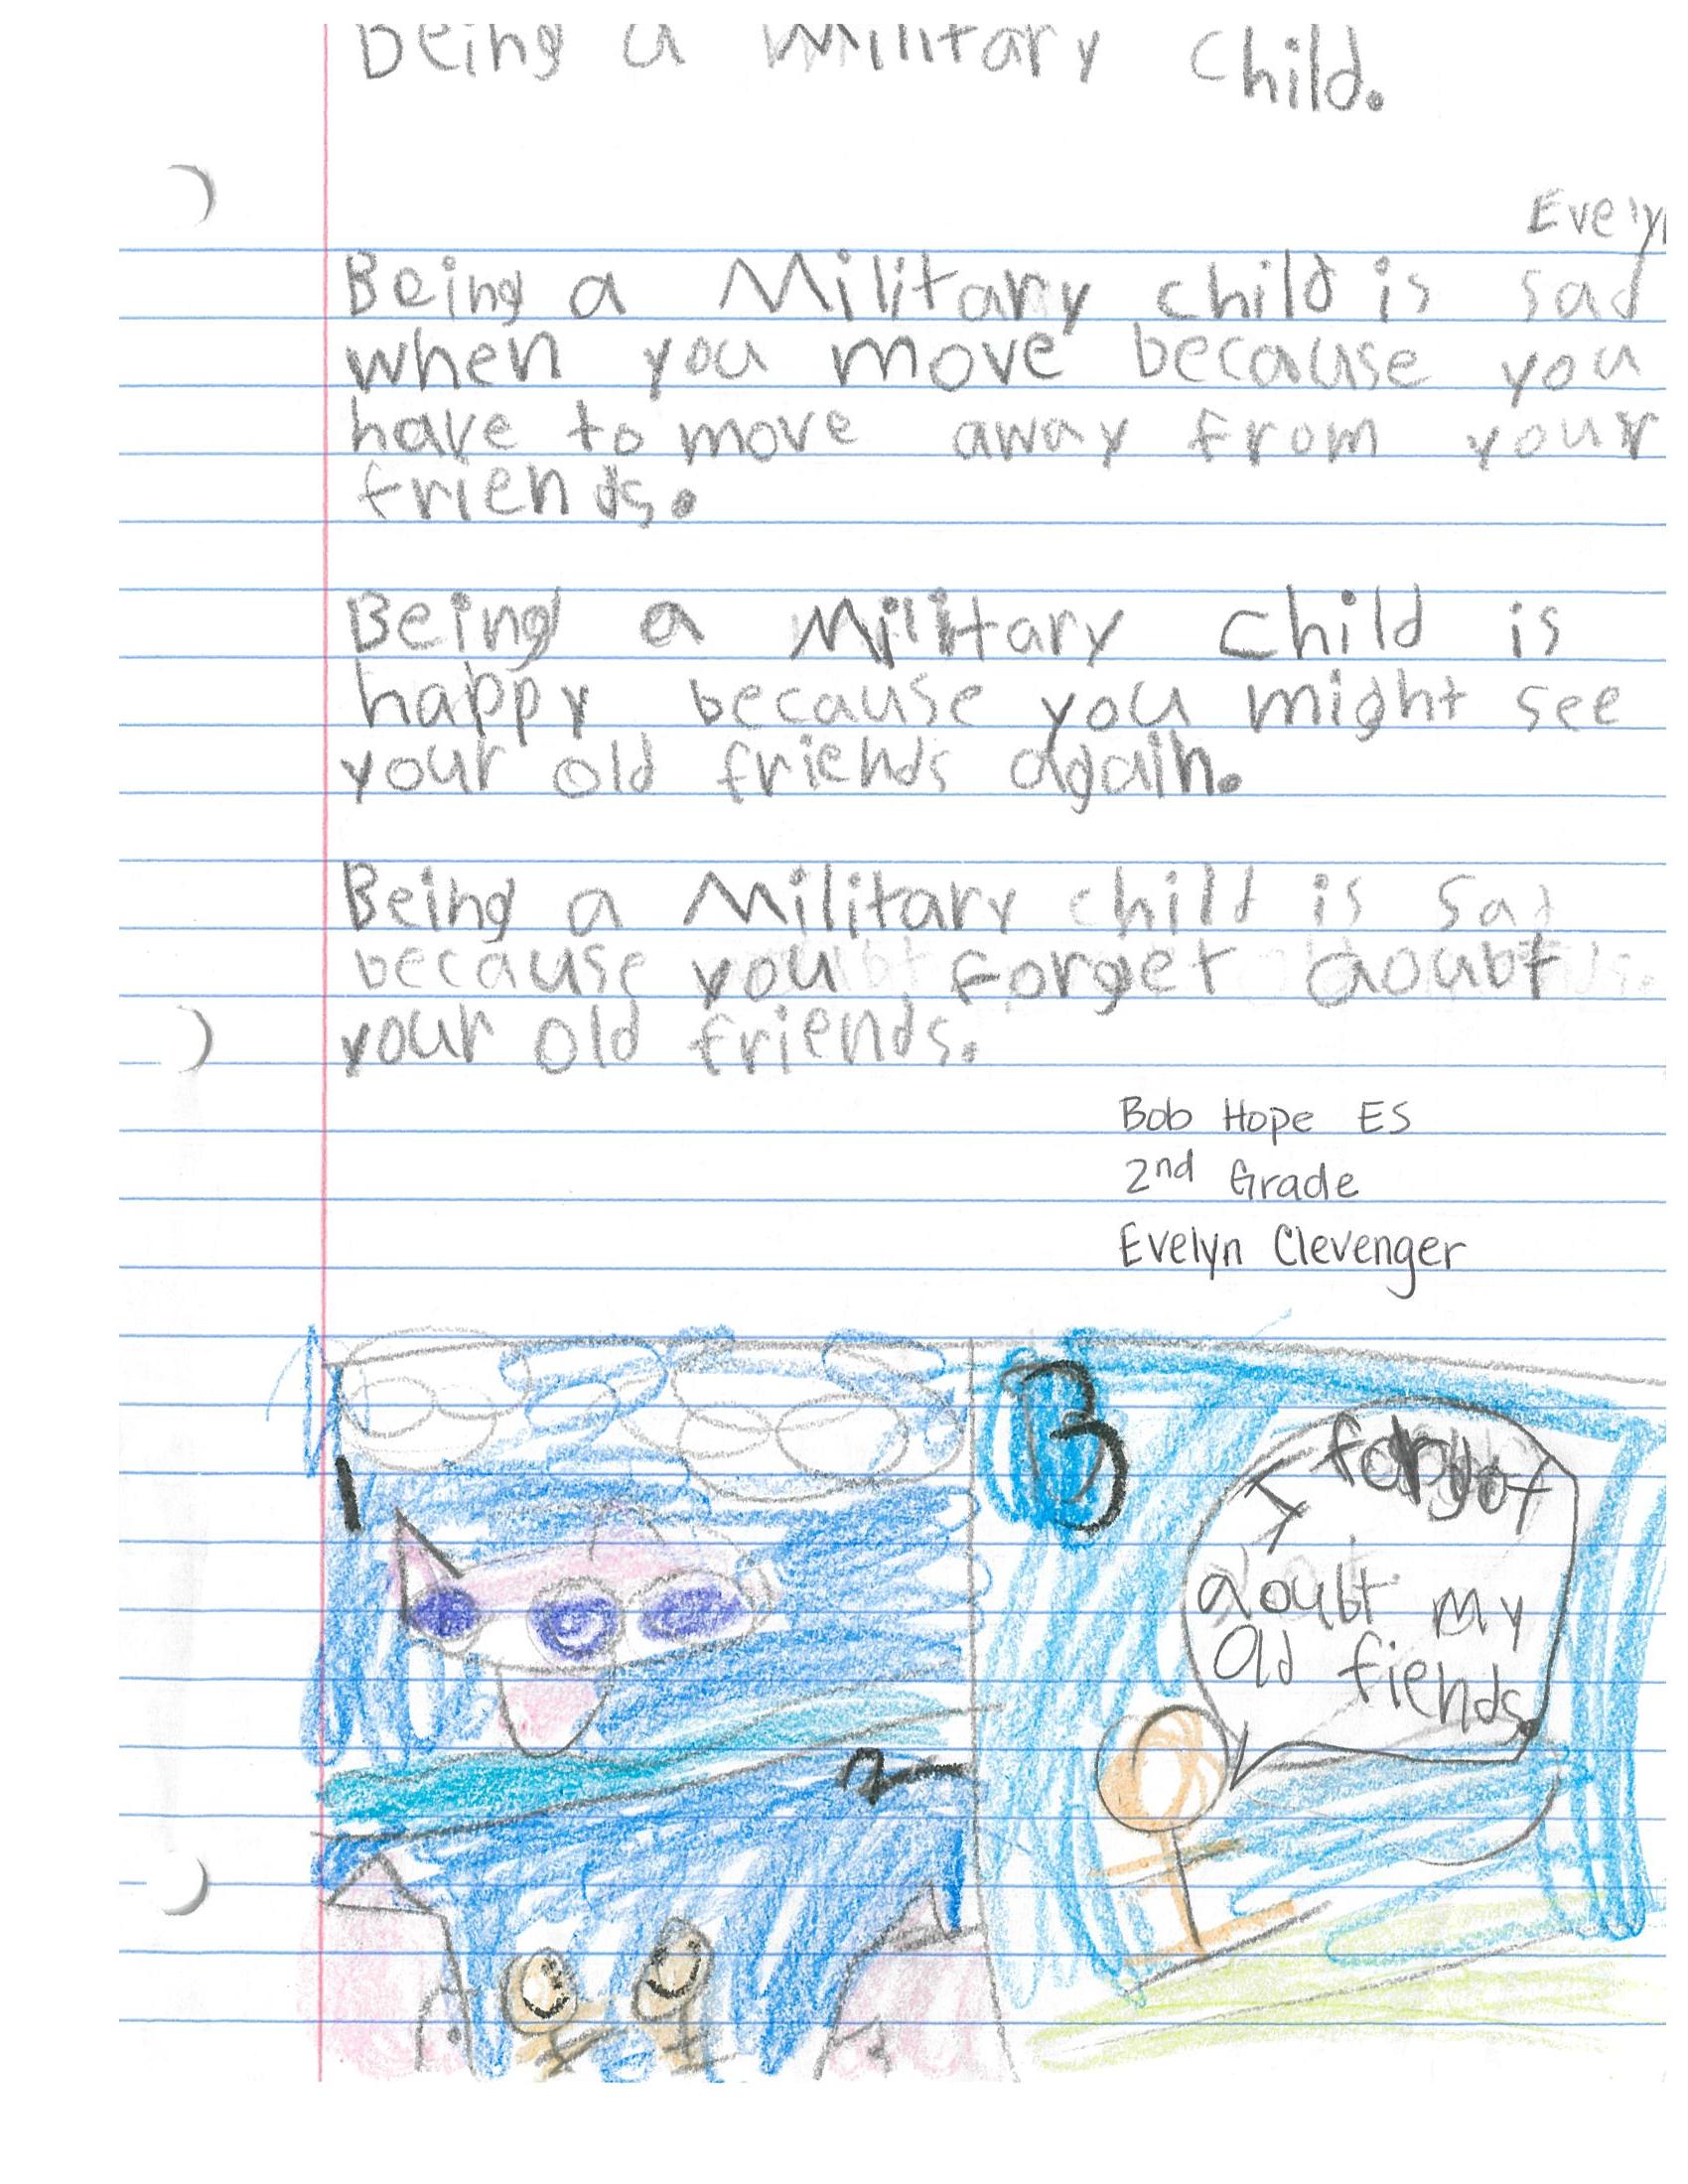 Being a Military Child.
Evelyn
Being a Military child is sad
when you move because you
have to move away from your
friends.
Being a Military Child is
happy because you might see
your old friends again.
Being a Military child is sad
because you forget aoubt
your old friends.
Bob Hope ES
2nd Grade
Evelyn Clevenger
1
2
3
I forgot
aoubt my
old fiends.